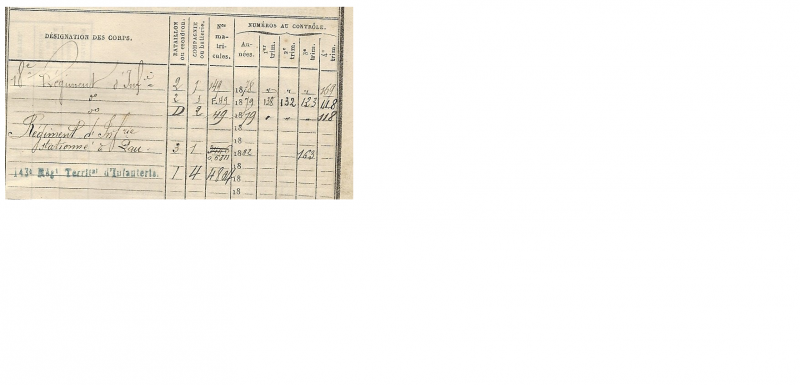 DÉSIGNATION DES CORPS.
BATAILLON ou escadron.
COMPAGNIE ou batterie.
Nos matricules.
NUMÉROS AU CONTRÔLE.
Années.
1er trim.
2e trim.
3e trim.
4e trim.
18e Régiment d'Infie 2 1 149 1878 " " " 161
do 2 1 1879 138 132 123 118
do D 2 49 1879 " " " 118
Régiment d'Infrie 18
stationné à Pau 3 1 1882 163
18
143e Régt Territal d'Infanterie. 1 4 18
18